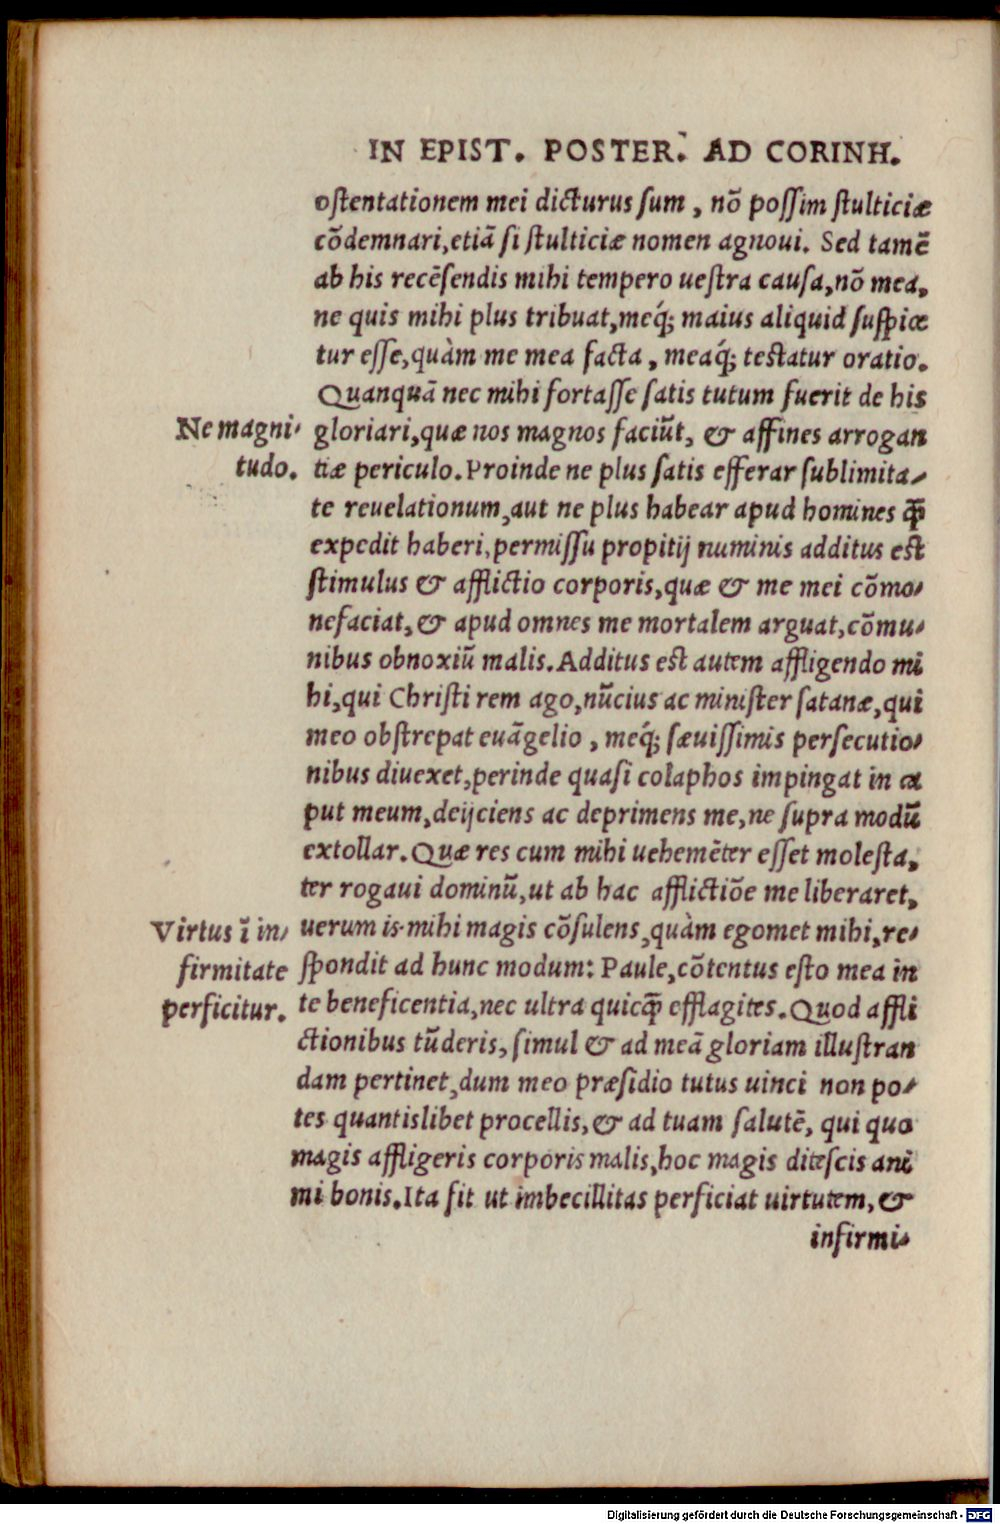 IN EPIST. POSTER. AD CORINH.
ostentationem mei dicturus sum, nõ possim stulticiæ
cõdemnari, etiã si stulticiæ nomen agnoui. Sed tamẽ
ab his recẽsendis mihi tempero uestra causa, nõ mea,
ne quis mihi plus tribuat, meq́; maius aliquid suspice
tur esse, quàm me mea facta, meaq́; testatur oratio.
Quanquã nec mihi fortasse satis tutum fuerit de his
Ne magni-
gloriari, quæ nos magnos faciũt, & affines arrogan
tudo.
tiæ periculo. Proinde ne plus satis efferar sublimita-
te reuelationum, aut ne plus habear apud homines q̃
expedit haberi, permissu propitij numinis additus est
stimulus & afflictio corporis, quæ & me mei cõmo-
nefaciat, & apud omnes me mortalem arguat, cõmu-
nibus obnoxiũ malis. Additus est autem affligendo mi
hi, qui Christi rem ago, nũcius ac minister satanæ, qui
meo obstrepat euãgelio, meq́; sæuissimis persecutio-
nibus diuexet, perinde quasi colaphos impingat in ca
put meum, deijciens ac deprimens me, ne supra modũ
extollar. Quæ res cum mihi uehemẽter esset molesta,
ter rogaui dominũ, ut ab hac afflictiõe me liberaret,
Virtus ĩ in-
uerum is mihi magis cõsulens, quàm egomet mihi, re-
firmitate
spondit ad hunc modum: Paule, cõtentus esto mea in
perficitur.
te beneficentia, nec ultra quicq̃ efflagites. Quod affli
ctionibus tũderis, simul & ad meã gloriam illustran
dam pertinet, dum meo præsidio tutus uinci non po-
tes quantislibet procellis, & ad tuam salutẽ, qui quo
magis affligeris corporis malis, hoc magis ditescis ani
mi bonis. Ita fit ut imbecillitas perficiat uirtutem, &
infirmi-
Digitalisierung gefördert durch die Deutsche Forschungsgemeinschaft - DFG